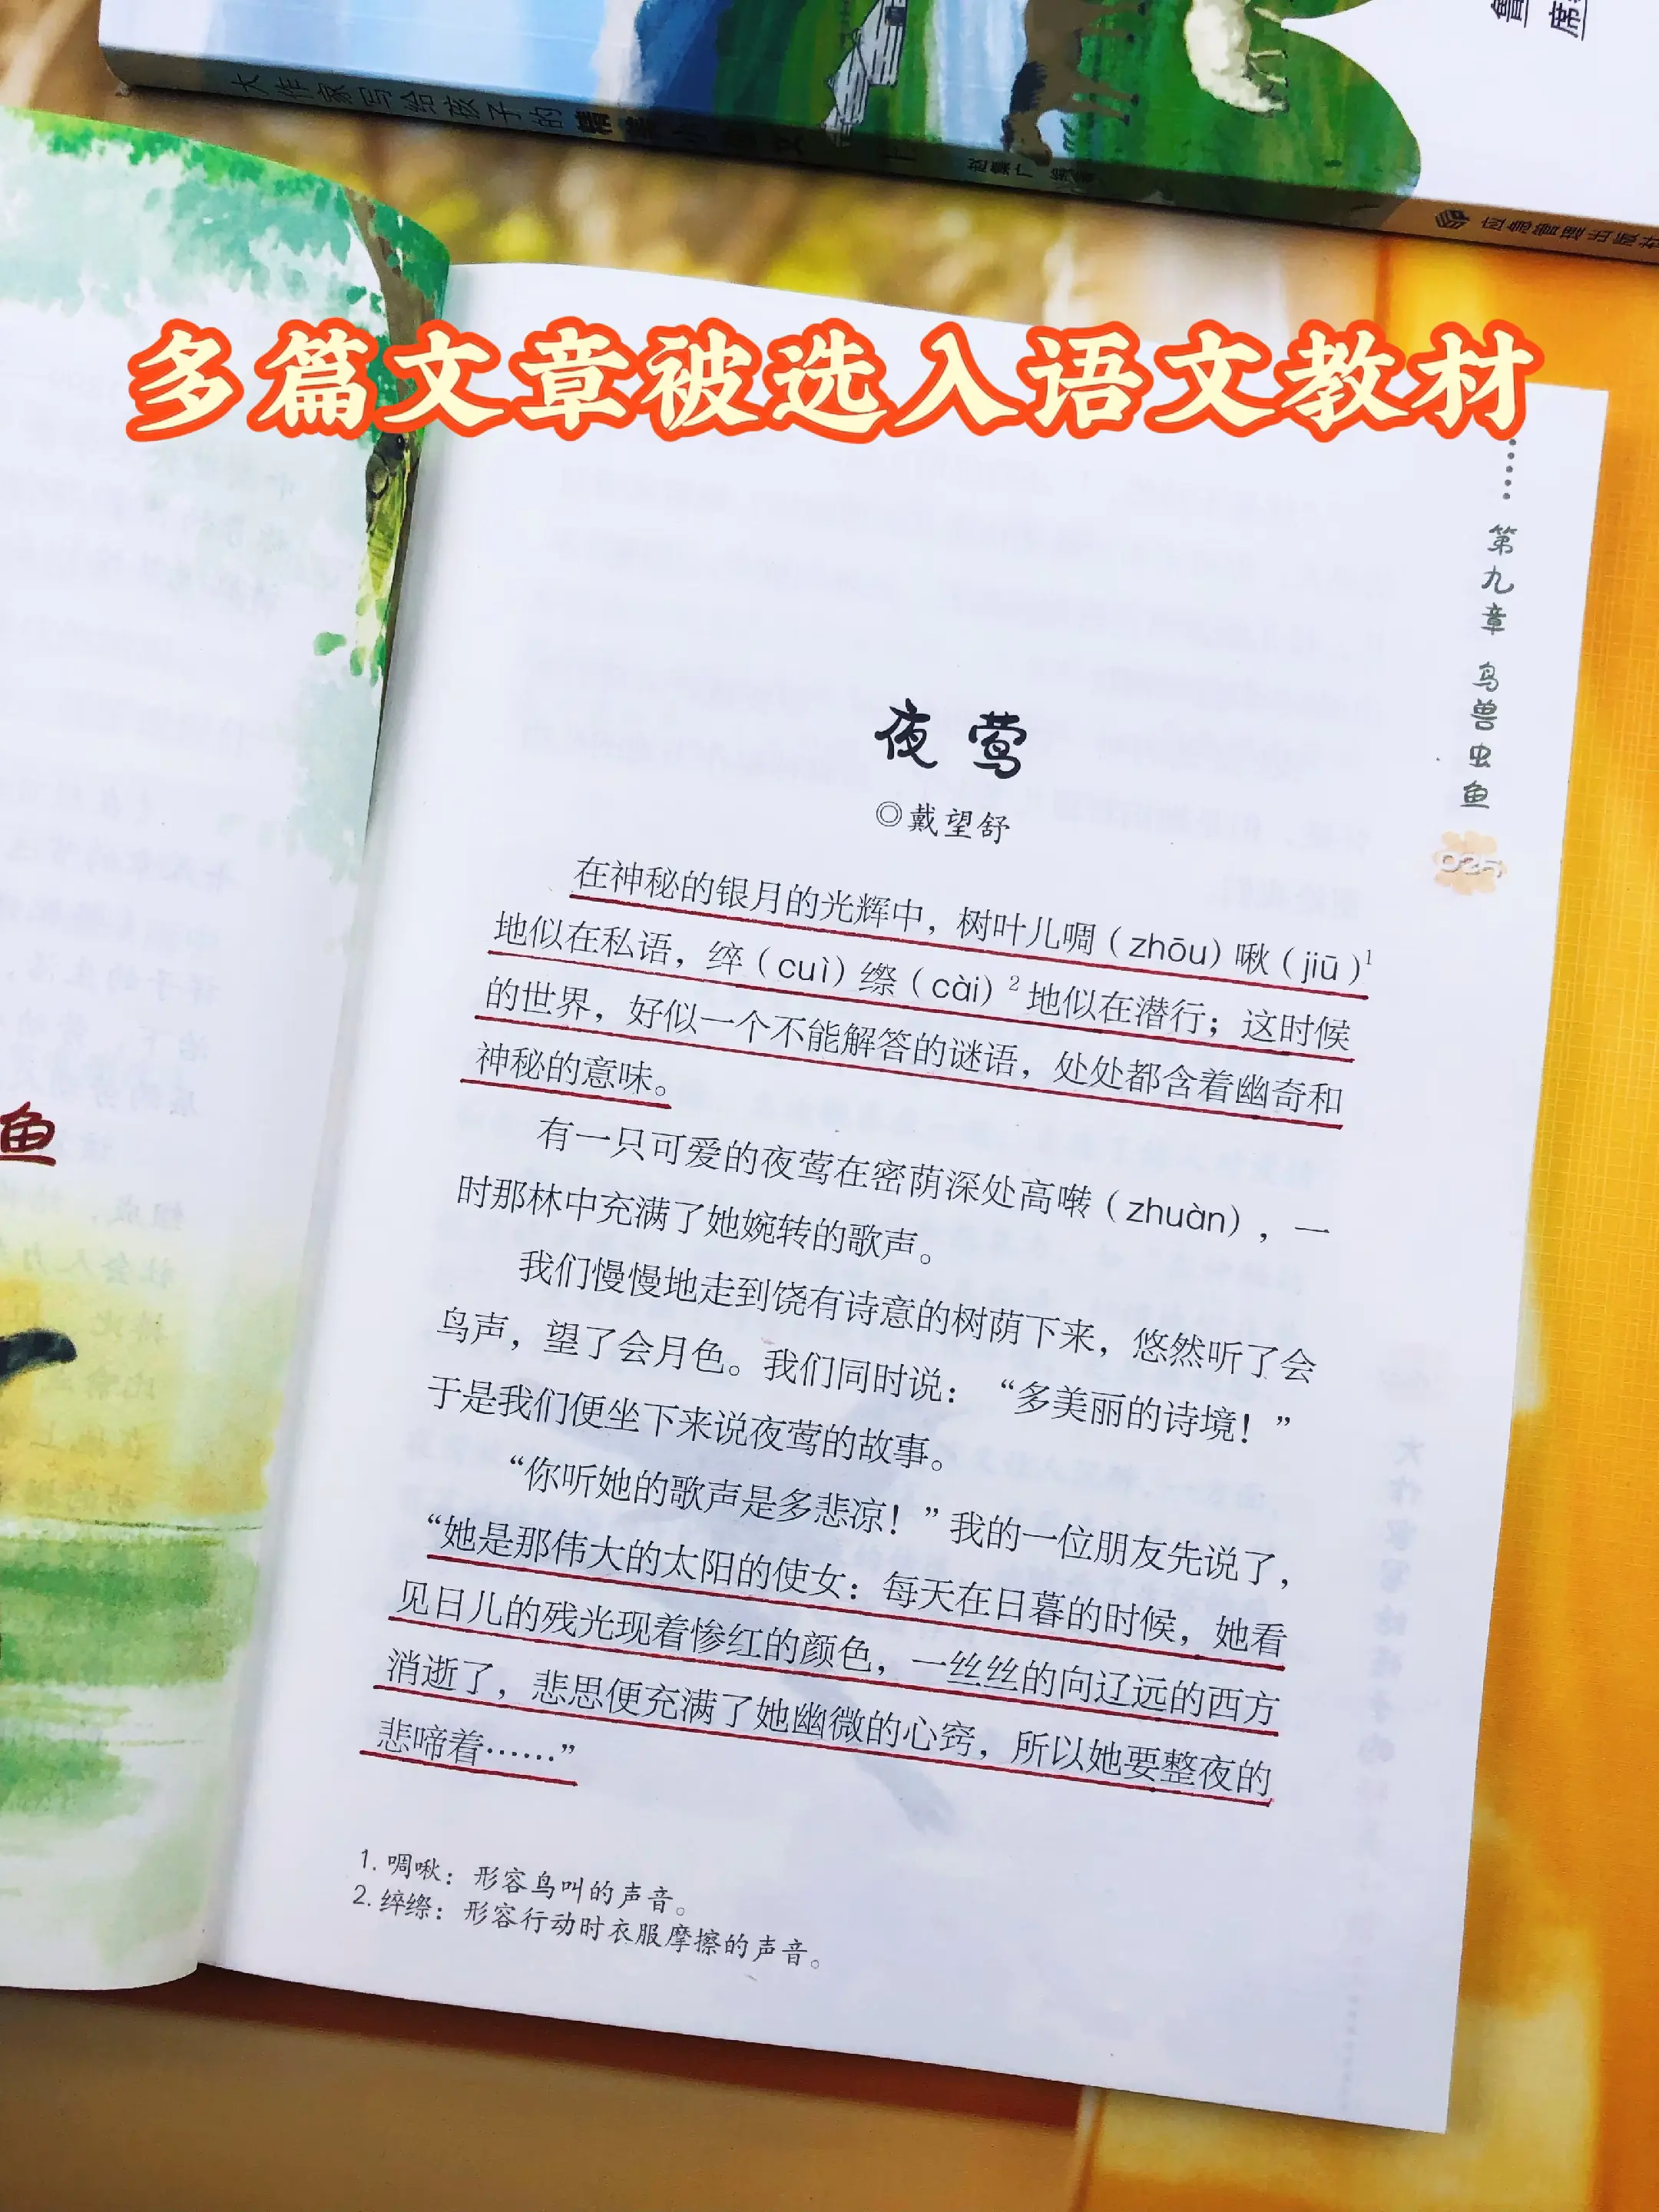 大作家写给孩子的精美小散文
应急管理出版社
多篇文章被选入语文教材
第九章 鸟兽虫鱼
025
鱼
夜莺
◎戴望舒
在神秘的银月的光辉中，树叶儿啁（zhōu）啾（jiū）1
地似在私语，綷（cuì）縩（cài）2地似在潜行；这时候
的世界，好似一个不能解答的谜语，处处都含着幽奇和
神秘的意味。
有一只可爱的夜莺在密荫深处高啭（zhuàn），一
时那林中充满了她婉转的歌声。
我们慢慢地走到饶有诗意的树荫下来，悠然听了会
鸟声，望了会月色。我们同时说：“多美丽的诗境！”
于是我们便坐下来说夜莺的故事。
“你听她的歌声是多悲凉！”我的一位朋友先说了，
“她是那伟大的太阳的使女：每天在日暮的时候，她看
见日儿的残光现着惨红的颜色，一丝丝的向辽远的西方
消逝了，悲思便充满了她幽微的心窍，所以她要整夜的
悲啼着……”
1. 啁啾：形容鸟叫的声音。
2. 綷縩：形容行动时衣服摩擦的声音。